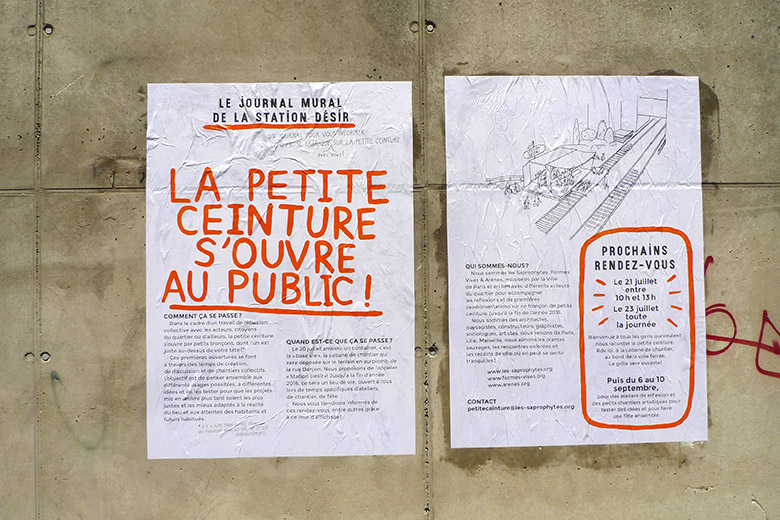 LE JOURNAL MURAL
DE LA STATION DÉSIR
UN JOURNAL POUR VOUS INFORMER
SUR LA PETITE CEINTURE
avec vous!
LA PETITE
CEINTURE
S'OUVRE
AU PUBLIC!
COMMENT ÇA SE PASSE?
Dans le cadre d'un travail de réflexion
collective avec les acteurs, citoyens
du quartier ou d'ailleurs, la petite ceinture
s'ouvre par petits tronçons, dont l'un est
juste au-dessus de votre tête!*
Ces premières ouvertures se font
à travers des temps de création,
de discussion et de chantiers collectifs.
L'objectif est de penser ensemble aux
différents usages possibles, à différentes
idées et de les tester pour que les projets
mis en œuvre plus tard soient les plus
justes et les mieux adaptés à la réalité
du lieu et aux attentes des habitants et
futurs habitués.
QUAND EST-CE QUE ÇA SE PASSE?
Le 20 juillet arrivera un container, c'est
la «base vie», la cabane de chantier qui
sera déposée sur le terrain en surplomb de
la rue Derçon. Nous proposons de l'appeler
«Station Désir»! Jusqu'à la fin d'année
2016, ce sera un lieu de vie, ouvert à tous
lors de temps spécifiques d'ateliers,
de chantier, de fête.
Nous vous tiendrons informés de
ces rendez-vous, entre autres grâce
à ce mur d'affichage!
QUI SOMMES-NOUS?
Nous sommes les Saprophytes, Formes
Vives & Arènes, missionnés par la Ville
de Paris et en lien avec différents acteurs
du quartier pour accompagner
les réflexions et de premières
expérimentations sur ce tronçon de petite
ceinture, jusqu'à la fin de l'année 2016.
Nous sommes des architectes,
paysagistes, constructeurs, graphistes,
sociologues, artistes, nous venons de Paris,
Lille, Marseille, nous aimons les plantes
sauvages, les rencontres colorées et
les recoins de ville où on peut se sentir
tranquilles!
www.les-saprophytes.org
www.formes-vives.org
www.arenes.org
CONTACT
petiteceinture@les-saprophytes.org
PROCHAINS
RENDEZ-VOUS
Le 21 juillet
entre
10h et 13h
Le 23 juillet
toute
la journée
Bienvenue à tous les gens qui veulent
nous raconter la petite ceinture.
Rdv ici, à la cabane de chantier,
au bord de la voie ferrée.
La grille sera ouverte!
Puis du 6 au 10
septembre,
pour des ateliers de réflexion et
des petits chantiers artistiques pour
tester des idées et pour faire
une fête ensemble.